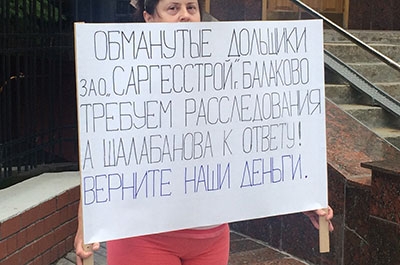 ОБМАНУТЫЕ ДОЛЬЩИКИ
ЗАО „САРГЕССТРОЙ", Г. БАЛАКОВО
ТРЕБУЕМ РАССЛЕДОВАНИЯ
А ШАЛАБАНОВА К ОТВЕТУ!
ВЕРНИТЕ НАШИ ДЕНЬГИ.